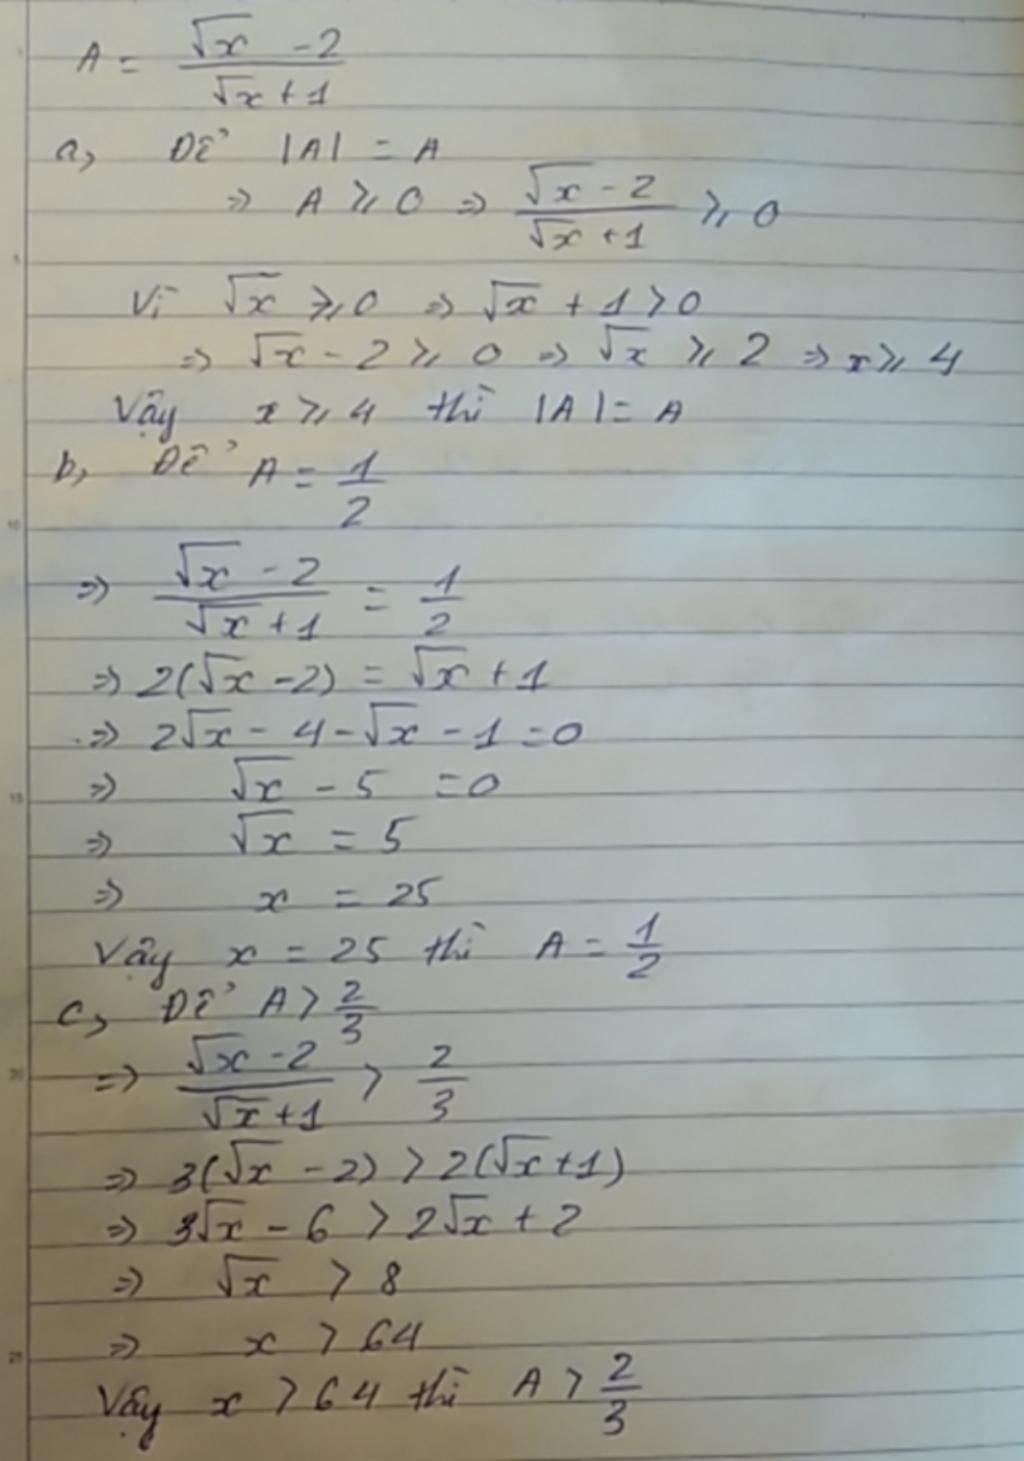 A = (√x - 2)/(√x + 1)
a, Để |A| = A
=> A ≥ 0 => (√x - 2)/(√x + 1) ≥ 0
Vì √x ≥ 0 => √x + 1 > 0
=> √x - 2 ≥ 0 => √x ≥ 2 => x ≥ 4
Vậy x ≥ 4 thì |A| = A
b, Để A = 1/2
=> (√x - 2)/(√x + 1) = 1/2
=> 2(√x - 2) = √x + 1
=> 2√x - 4 - √x - 1 = 0
=> √x - 5 = 0
=> √x = 5
=> x = 25
Vậy x = 25 thì A = 1/2
c, Để A > 2/3
=> (√x - 2)/(√x + 1) > 2/3
=> 3(√x - 2) > 2(√x + 1)
=> 3√x - 6 > 2√x + 2
=> √x > 8
=> x > 64
Vậy x > 64 thì A > 2/3